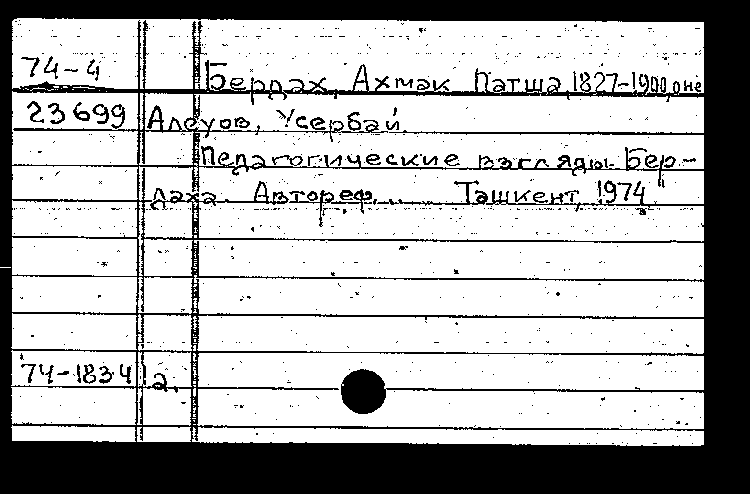 74-4 Бердах, Ахмак Патша, 1827-1900, о не
23699 Алеуов, Усербай.
Педагогические взгляды Бер-
даха. Автореф... Ташкент, 1974
74-18341а.